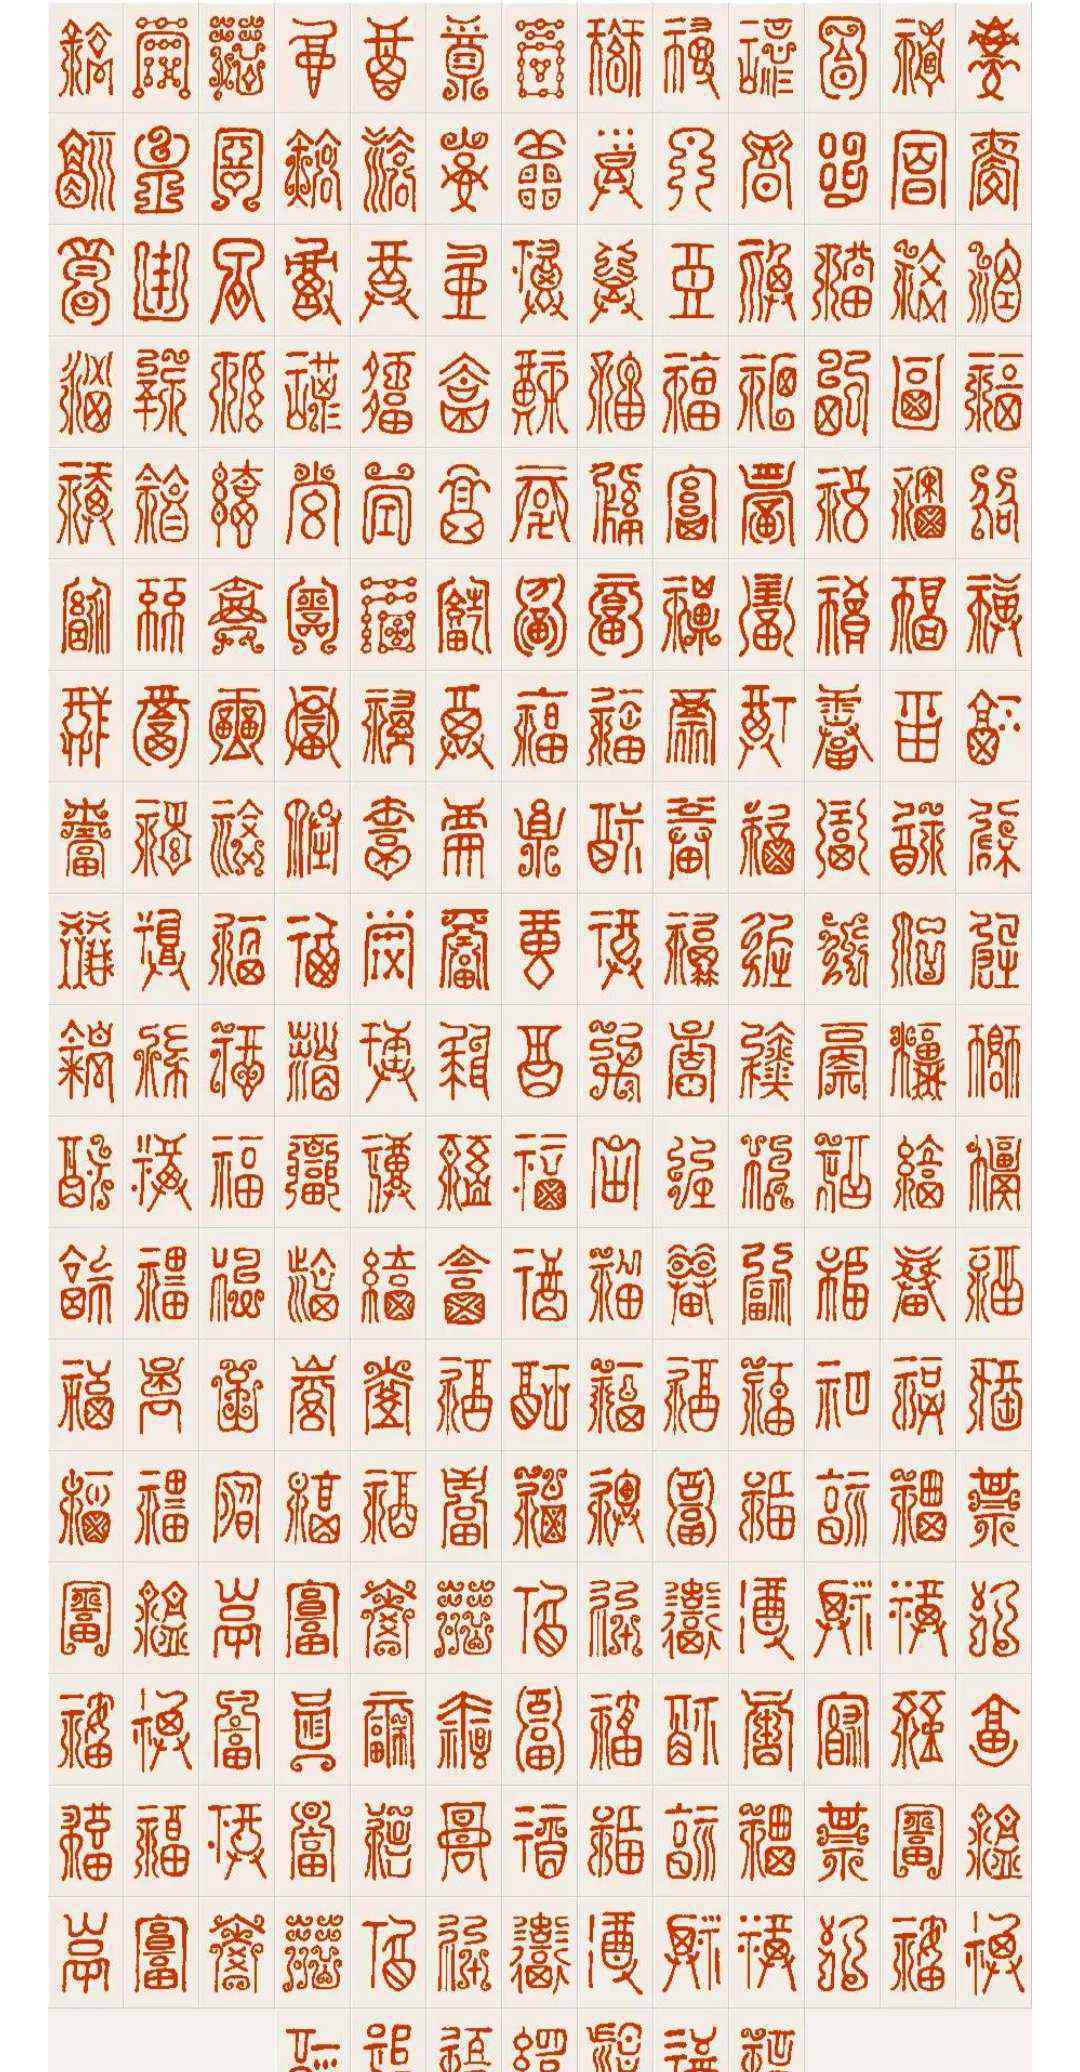 福福福福福福福福福福福福福
福福福福福福福福福福福福福
福福福福福福福福福福福福福
福福福福福福福福福福福福福
福福福福福福福福福福福福福
福福福福福福福福福福福福福
福福福福福福福福福福福福福
福福福福福福福福福福福福福
福福福福福福福福福福福福福
福福福福福福福福福福福福福
福福福福福福福福福福福福福
福福福福福福福福福福福福福
福福福福福福福福福福福福福
福福福福福福福福福福福福福
福福福福福福福福福福福福福
福福福福福福福福福福福福福
福福福福福福福福福福福福福
福福福福福福福福福福福福福